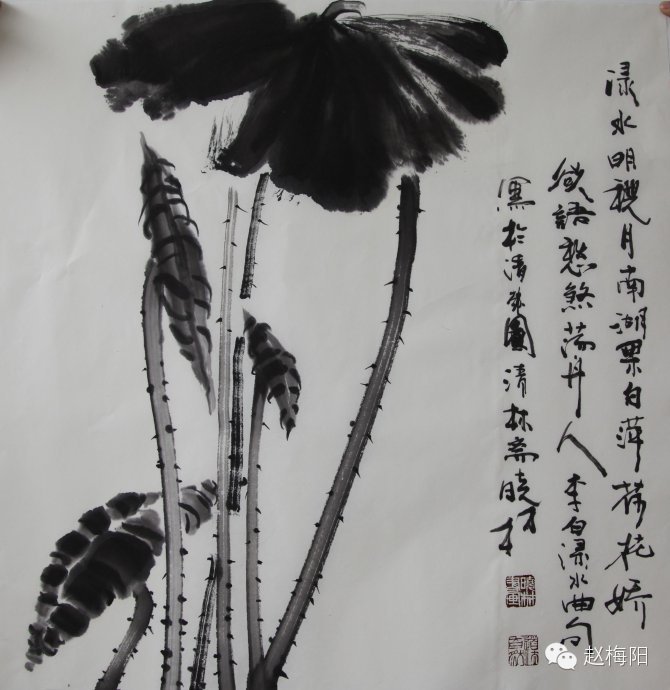 渌水明秋月南湖采白萍荷花娇
欲語愁煞荡舟人 李白渌水曲句
写於清华園清林斋晓林
赵梅阳